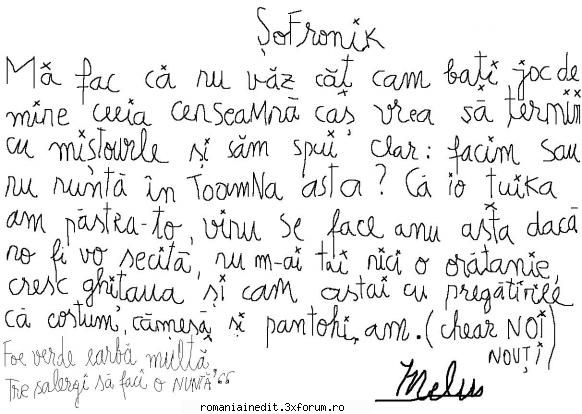 ȘoFroniK
Mă fac că nu văz căt cam bați joc de
mine ceeia censeaMnă caș vrea să termin
cu miștourle și săm spui clar: facim sau
nu nuntă în ToamNa asta? Că io țuika
am păstra-to, vinu se face anu ăsta dacă
no fi vo secită, nu m-ai tai nici o orătanie,
cresc ghitaua și cam astai cu pregătirile
că costum, cămeșă și pantohi, am. (chear NOI
NOUȚI)
Foe verde earbă multă
Tre salergi să faci o NUNTĂ"
Melus
romaniainedit.3xforum.ro